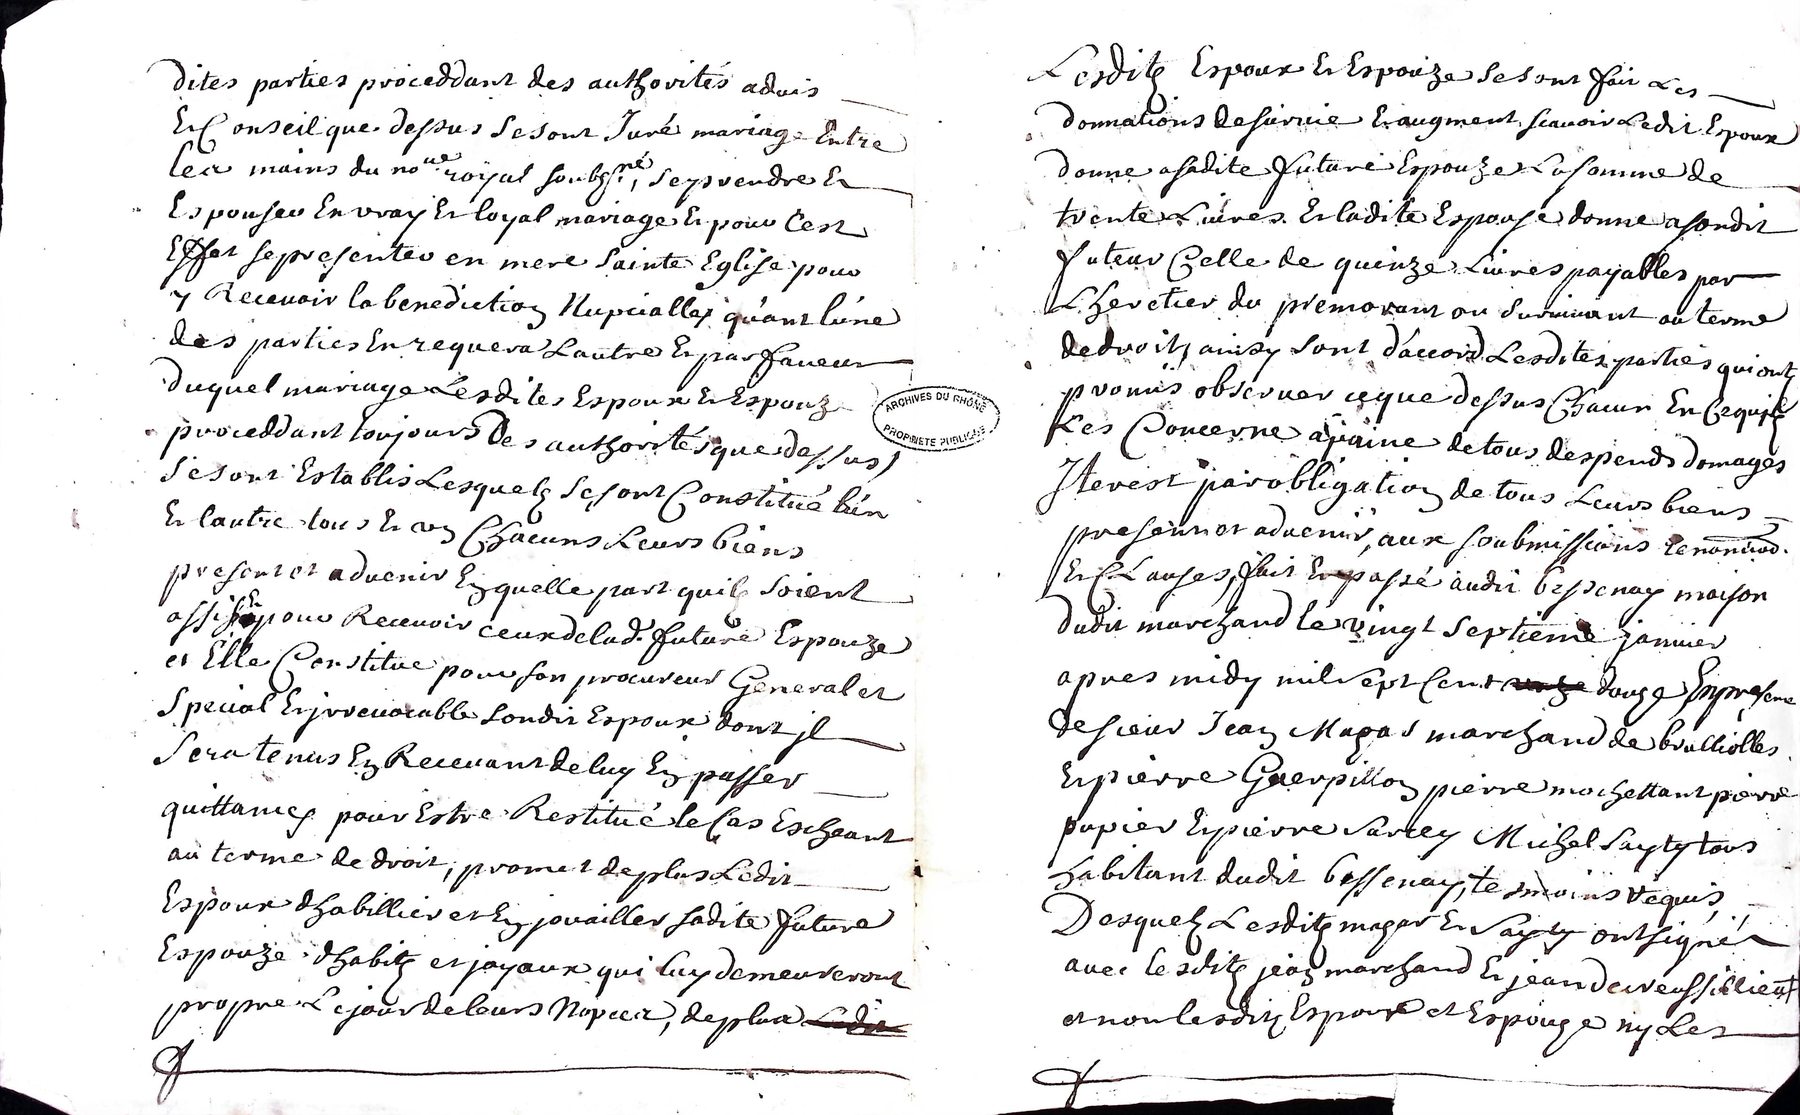 dites parties proceddant des authorités advis
Et Conseil que dessus se sont Juré mariage Entre
les mains du no.re royal soubs.né, se prendre Et
Espouser En vray Et loyal mariage Et pour Cest
Effet se presenter en mere Sainte Eglise pour
y Recevoir la benediction Nupcialle, qu'ant lúne
des parties En requera Lautre Et par faveur
duquel mariage Lesdites Espoux Et Espouze
proceddant toujours des authorités que dessus,
se sont Establis Lesquels se sont Constitué lún
Et lautre tous Et un Chacuns Leurs biens
present et advenir En quelle part quils soient
assis Et pour Recevoir ceux de lad. future Espouze
et Elle Constitue pour son procureur General et
Special Et jrrevocable Sondit Espoux dont jl
Sera tenus En Recevant de luy En passer
quittances pour Estre Restitué le Cas Escheant
au terme de droit, promet de plus Ledit
Espoux dhabillier et En jouailler sadite future
Espouze dhabits et joyaux qui luy demeureront
propre Le jour de leurs Nopces, de plus Ledit
Lesdits Espoux Et Espouze se sont fait Les
donnations de survie Et augment, scavoir Ledit Espoux
donne a sadite future Espouze La somme de
trente Livres. Et ladite Espouse donne a sondit
futeur Celle de quinze Livres payables par
L'heretier du premourant au Survivant au terme
de droit, ainsy sont d'accord Lesdites parties qui ont
promis observer ce que dessus Chacun En Ce qui
Les Concerne a paine de tous despends domages
Jterest par obligation de tous Leurs biens
present et advenir, aux soubmissions renonciaõ.
Et Clauses, fait Et passé audit bessenay maison
dudit marchand le vingt septieme janvier
apres midy mil sept Cent onze douze En presence
de sieur Jean Magat marchand de brulliolles
Et pierre Guerpillon pierre mochettant pierre
papier Et pierre Sarcey Michel Sayty tous
habitant dudit bessenay, tesmoins requis,
Desquels Lesdits magat Et Sayty ont signé
avec lesdits jean marchand Et jean de
et non lesdits Espoux et Espouze ny Les
ARCHIVES DU RHÔNE
PROPRIETE PUBLIQUE